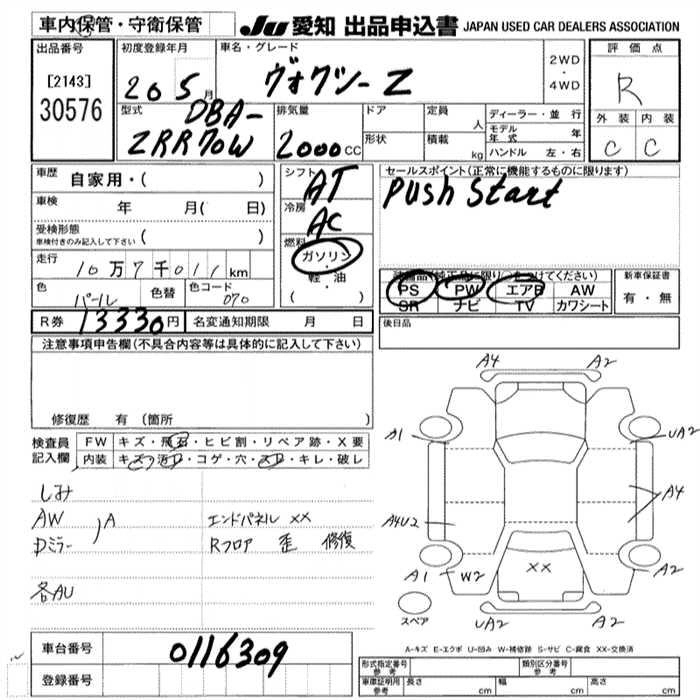 車内保管・守衛保管
JU 愛知 出品申込書 JAPAN USED CAR DEALERS ASSOCIATION
出品番号
[2143]
30576
初度登録年月
20 5 月
車名・グレード
ヴォクシー Z
2WD
・
4WD
評価点
R
外装 内装
C C
型式
DBA-
ZRR70W
排気量
2000 CC
ドア
形状
定員 人
積載 kg
ディーラー・並行
モデル年式 年
ハンドル 左・右
車歴 自家用・( )
車検 年 月( 日)
受検形態
車検付きのみ記入して下さい ( )
走行 10万7千011km
色 パール 色替 色コード 070
シフト AT
冷房 AC
燃料
ガソリン
軽・油
( ・ )
セールスポイント(正常に機能するものに限ります)
Push Start
PS PW エアB AW
SR ナビ TV カワシート
新車保証書
有・無
R券 13330円 名変通知期限 月 日
後日品
注意事項申告欄(不具合内容等は具体的に記入して下さい)
修復歴 有 (箇所 )
検査員
記入欄
FW キズ・飛石・ヒビ割・リペア跡・X要
内装 キズ・汚れ・コゲ・穴・スレ・キレ・破レ
しみ
AW
Dミラー
A
エンドパネル XX
Rフロア 歪 修復
各AU
A4 A2
A1 UA2
A4
A4U2
A1 W2 XX A2
UA2 A2
スペア
A-キズ E-エクボ U-凹み W-補修跡 S-サビ C-腐食 XX-交換済
車台番号 0116309
登録番号
形式指定番号 参考
類別区分番号 参考
車庫証明用 参考 長さ cm 幅 cm 高さ cm